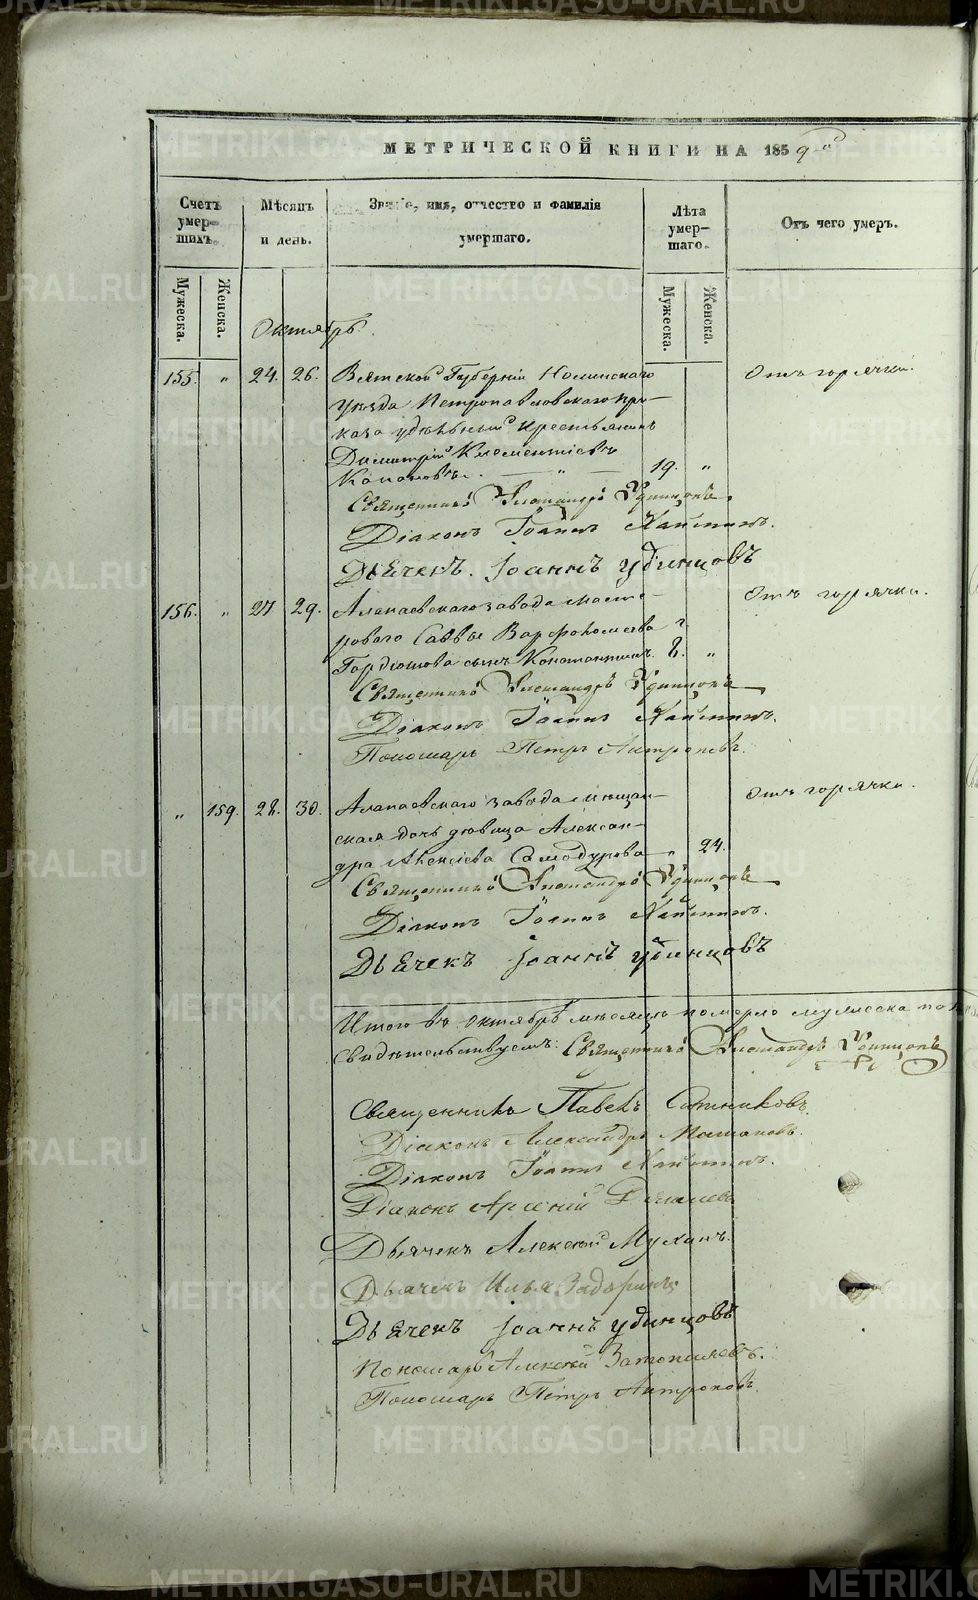 МЕТРИЧЕСКОЙ КНИГИ НА 1859 й
Счетъ умер-шихъ.
Мѣсяцъ и день.
Званіе, имя, отчество и фамилія умершаго.
Лѣта умер-шаго.
Отъ чего умеръ.
Мужеска.
Женска.
Мужеска.
Женска.
Октябрь.
155. „ 24. 26. Вятской Губерніи Нолинскаго
Отъ горячки.
уѣзда Петропавловскаго при-
каза удѣльный крестьянинъ
Димитрій Клементіевъ
19. „
Священникъ Александръ Удинцовъ
Діаконъ Іоаннъ
Дьячекъ Іоаннъ Удинцовъ
156. „ 27 29. Алапаевскаго завода масте-
Отъ горячки.
роваго Саввы Варфоломѣева
сынъ Константинъ. 8. „
Священникъ Александръ Удинцовъ
Діаконъ Іоаннъ
Пономарь Петръ Антроповъ.
„ 159. 28. 30. Алапаевскаго завода мѣщан-
Отъ горячки.
ская дочь дѣвица Алексан-
дра Алексіева Самодурова „ 24.
Священникъ Александръ Удинцовъ
Діаконъ Іоаннъ
Дьячекъ Іоаннъ Удинцовъ
Итого въ октябрѣ мѣсяцѣ померло мужеска
Свидѣтельствуемъ: Священникъ Александръ Удинцовъ
Священникъ Павелъ Сатниковъ.
Діаконъ Александръ
Діаконъ Іоаннъ
Діаконъ Арсеній
Дьячекъ Алексѣй Мухинъ.
Дьячекъ Илья Задоринъ
Дьячекъ Іоаннъ Удинцовъ
Пономарь Алексѣй
Пономарь Петръ Антроповъ.
METRIKI.GASO-URAL.RU